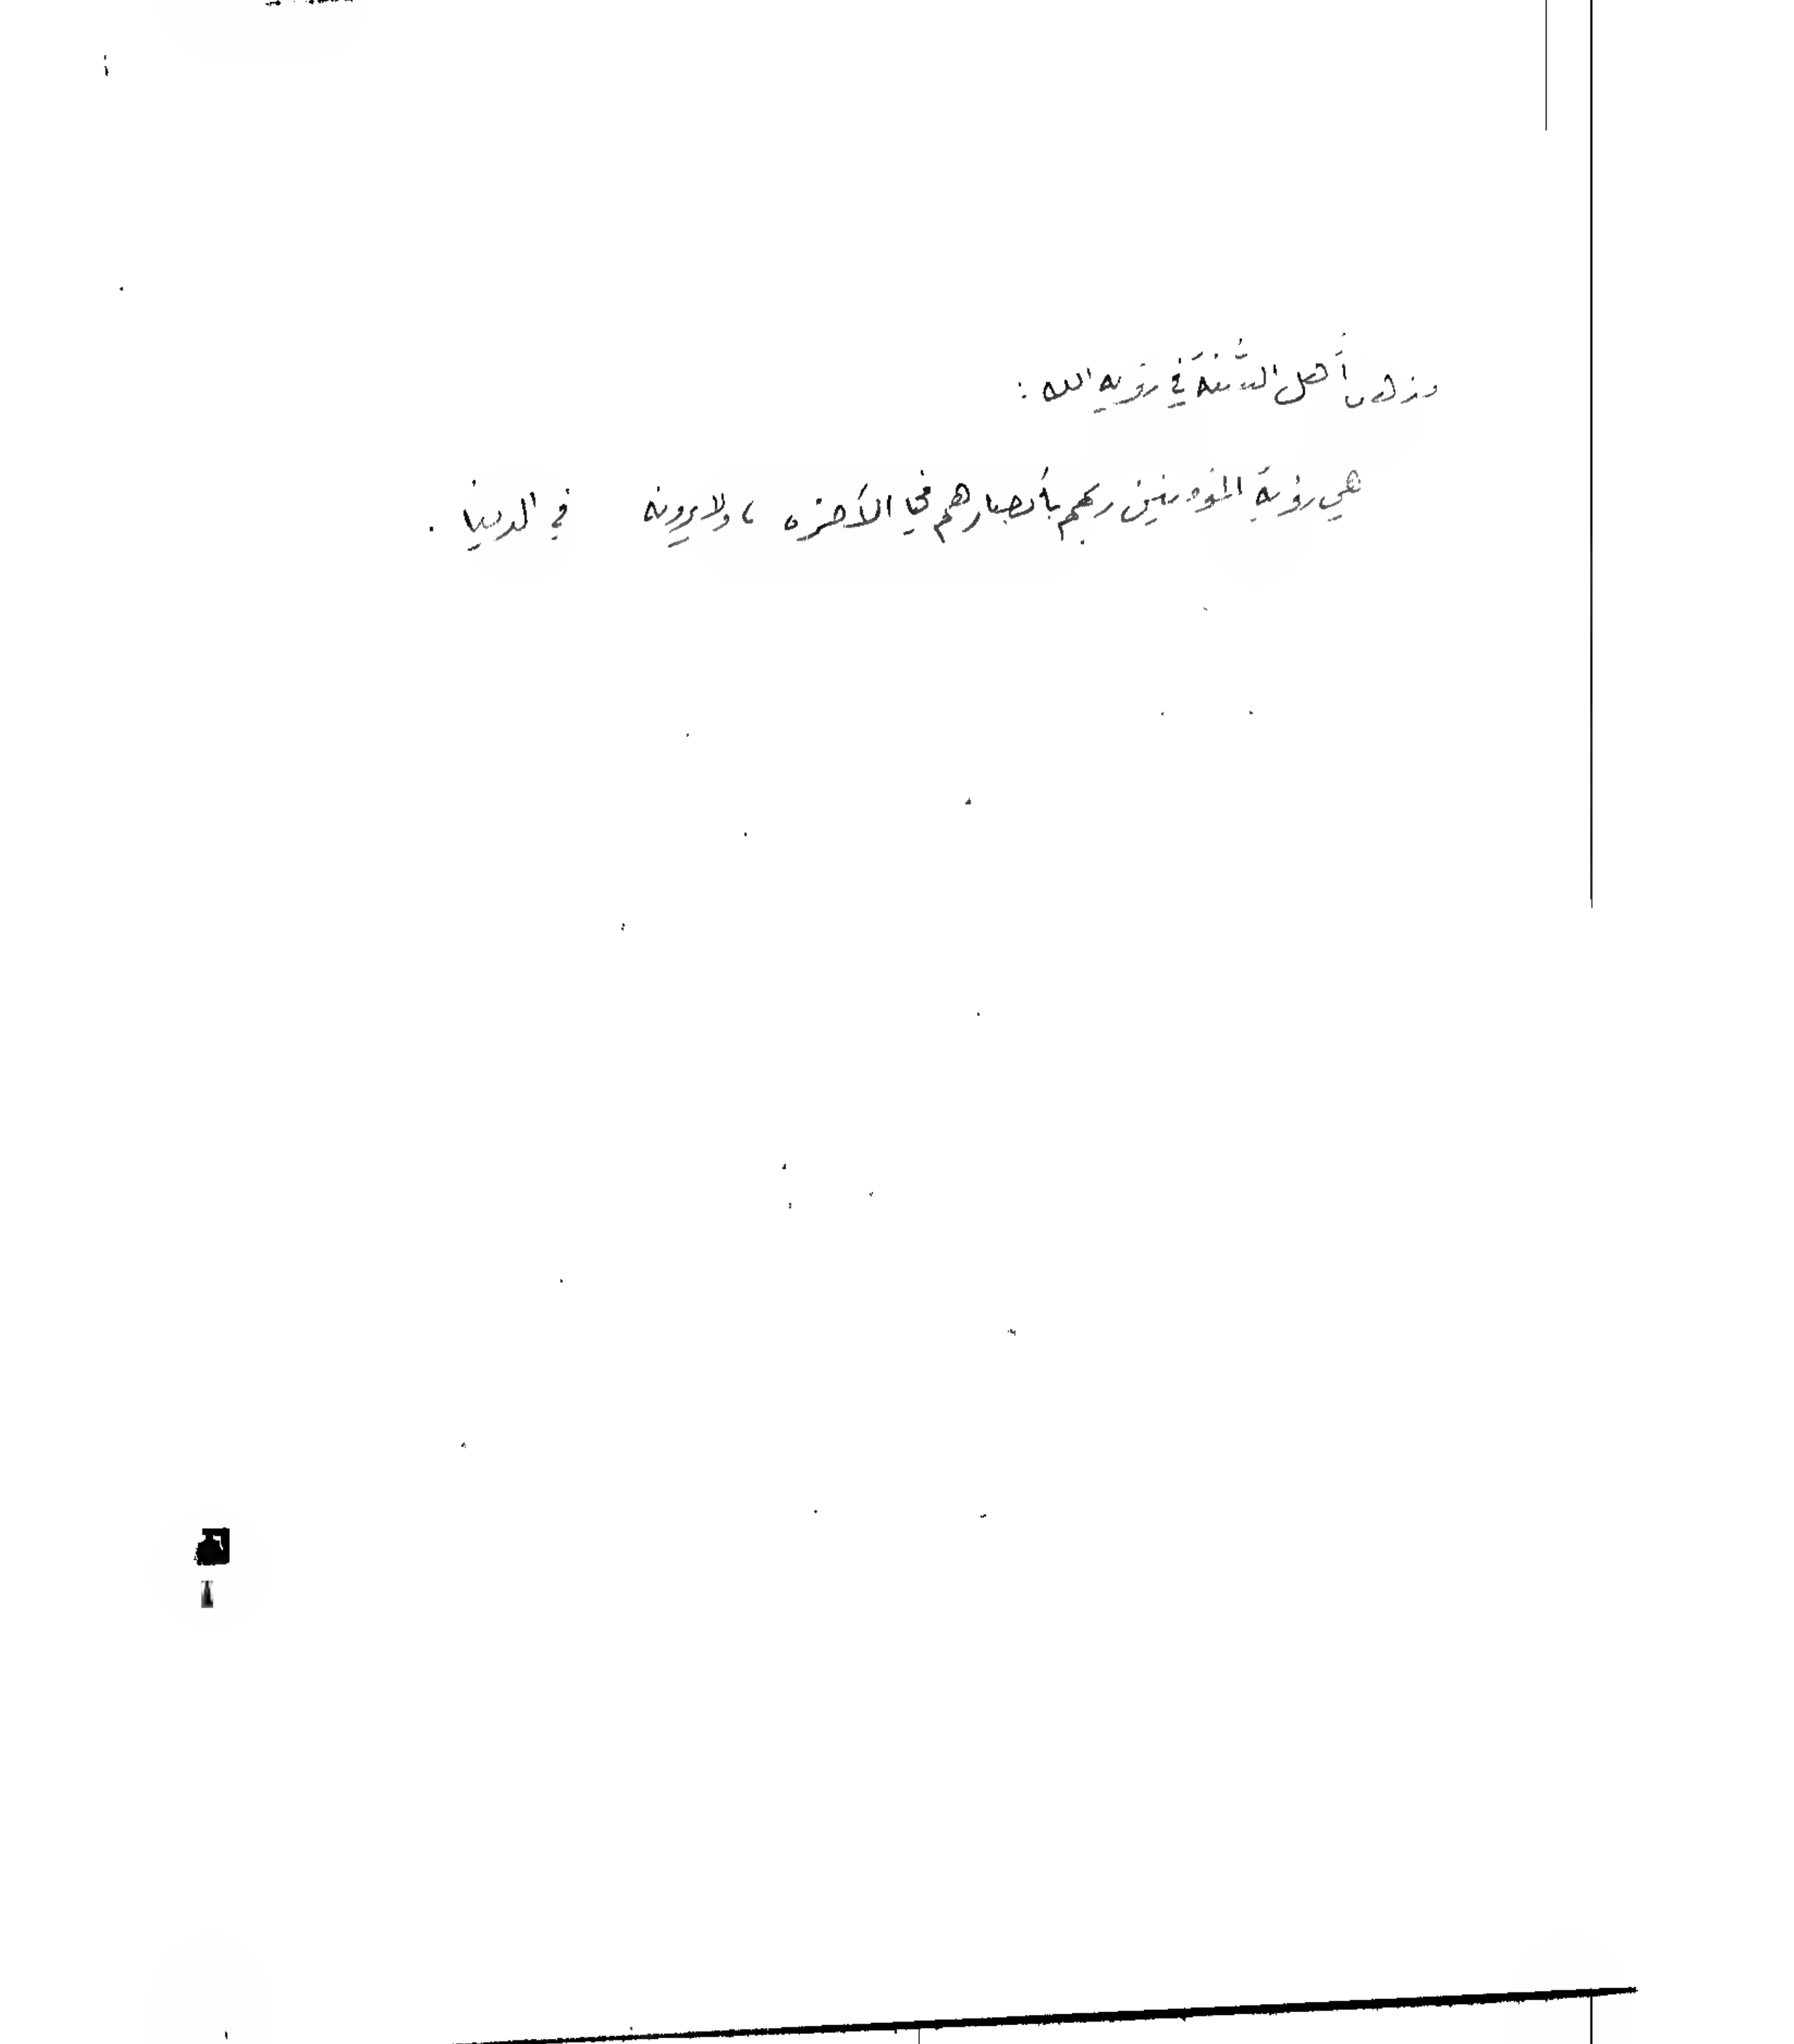 مذهب أهل السُّنَّة في رؤية الله :
هي رؤية المؤمنين ربهم بأبصارهم في الآخرة ، ولا يرونه في الدنيا .